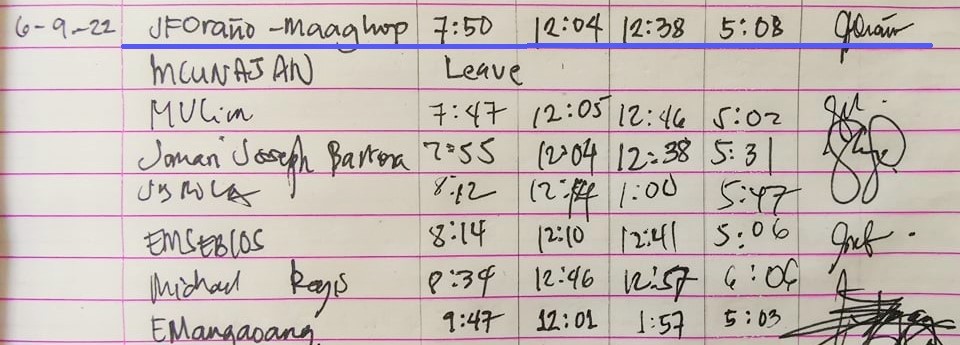 6-9-22 JFOraño-Maaghop 7:50 12:04 12:38 5:08 JFOraño
MCUNAJAN Leave
MVLim 7:47 12:05 12:46 5:02
Jomari Joseph 7:55 12:04 12:38 5:31
8:12 12:14 1:00 5:47
EMSEBIOS 8:14 12:10 12:41 5:06
Michael Regis 8:34 12:46 12:57 6:06
EMangaoang 9:47 12:01 1:57 5:03